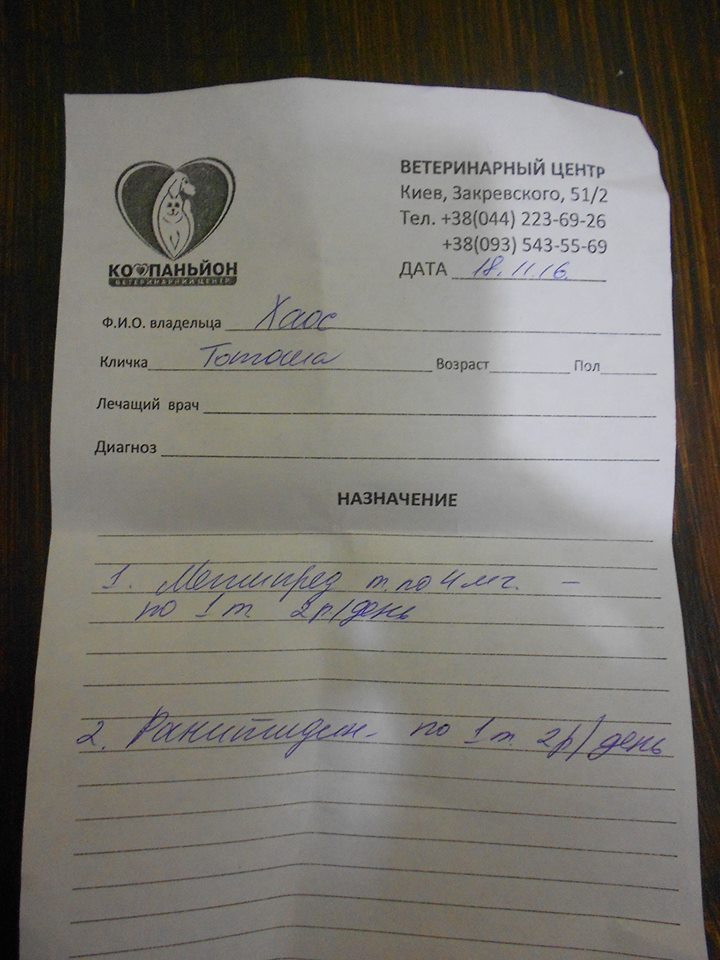 КОМПАНЬЙОН
ВЕТЕРИНАРНИЙ ЦЕНТР
ВЕТЕРИНАРНЫЙ ЦЕНТР
Киев, Закревского, 51/2
Тел. +38(044) 223-69-26
+38(093) 543-55-69
ДАТА 18.11.16.
Ф.И.О. владельца Хаос
Кличка Тотоша Возраст Пол
Лечащий врач
Диагноз
НАЗНАЧЕНИЕ
1. Метипред т. по 4 мг. –
по 1 т. 2 р/день
2. Ранитидин - по 1 т. 2р/день